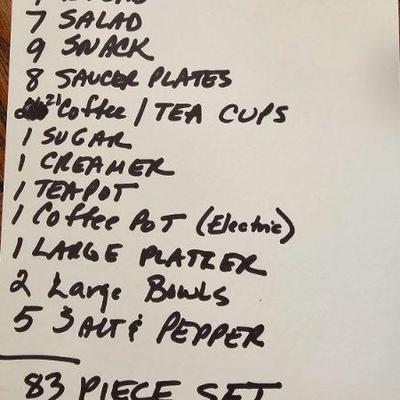 7 SALAD
9 SNACK
8 SAUCER PLATES
21 Coffee / TEA CUPS
1 SUGAR
1 CREAMER
1 TEAPOT
1 Coffee POT (Electric)
1 LARGE PLATTER
2 Large Bowls
5 SALT & PEPPER
83 PIECE SET